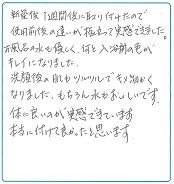 新築後1週間後に取り付けたので
使用前後の違いが極立って実感できました。
お風呂の水も優しく、何と入浴剤の色が
キレイになりました。
洗顔後の肌もツルツルでキメ細かく
なりました。もちろん水もおいしいです。
体に良いのが実感できています
本当に付けて良かったと思います。